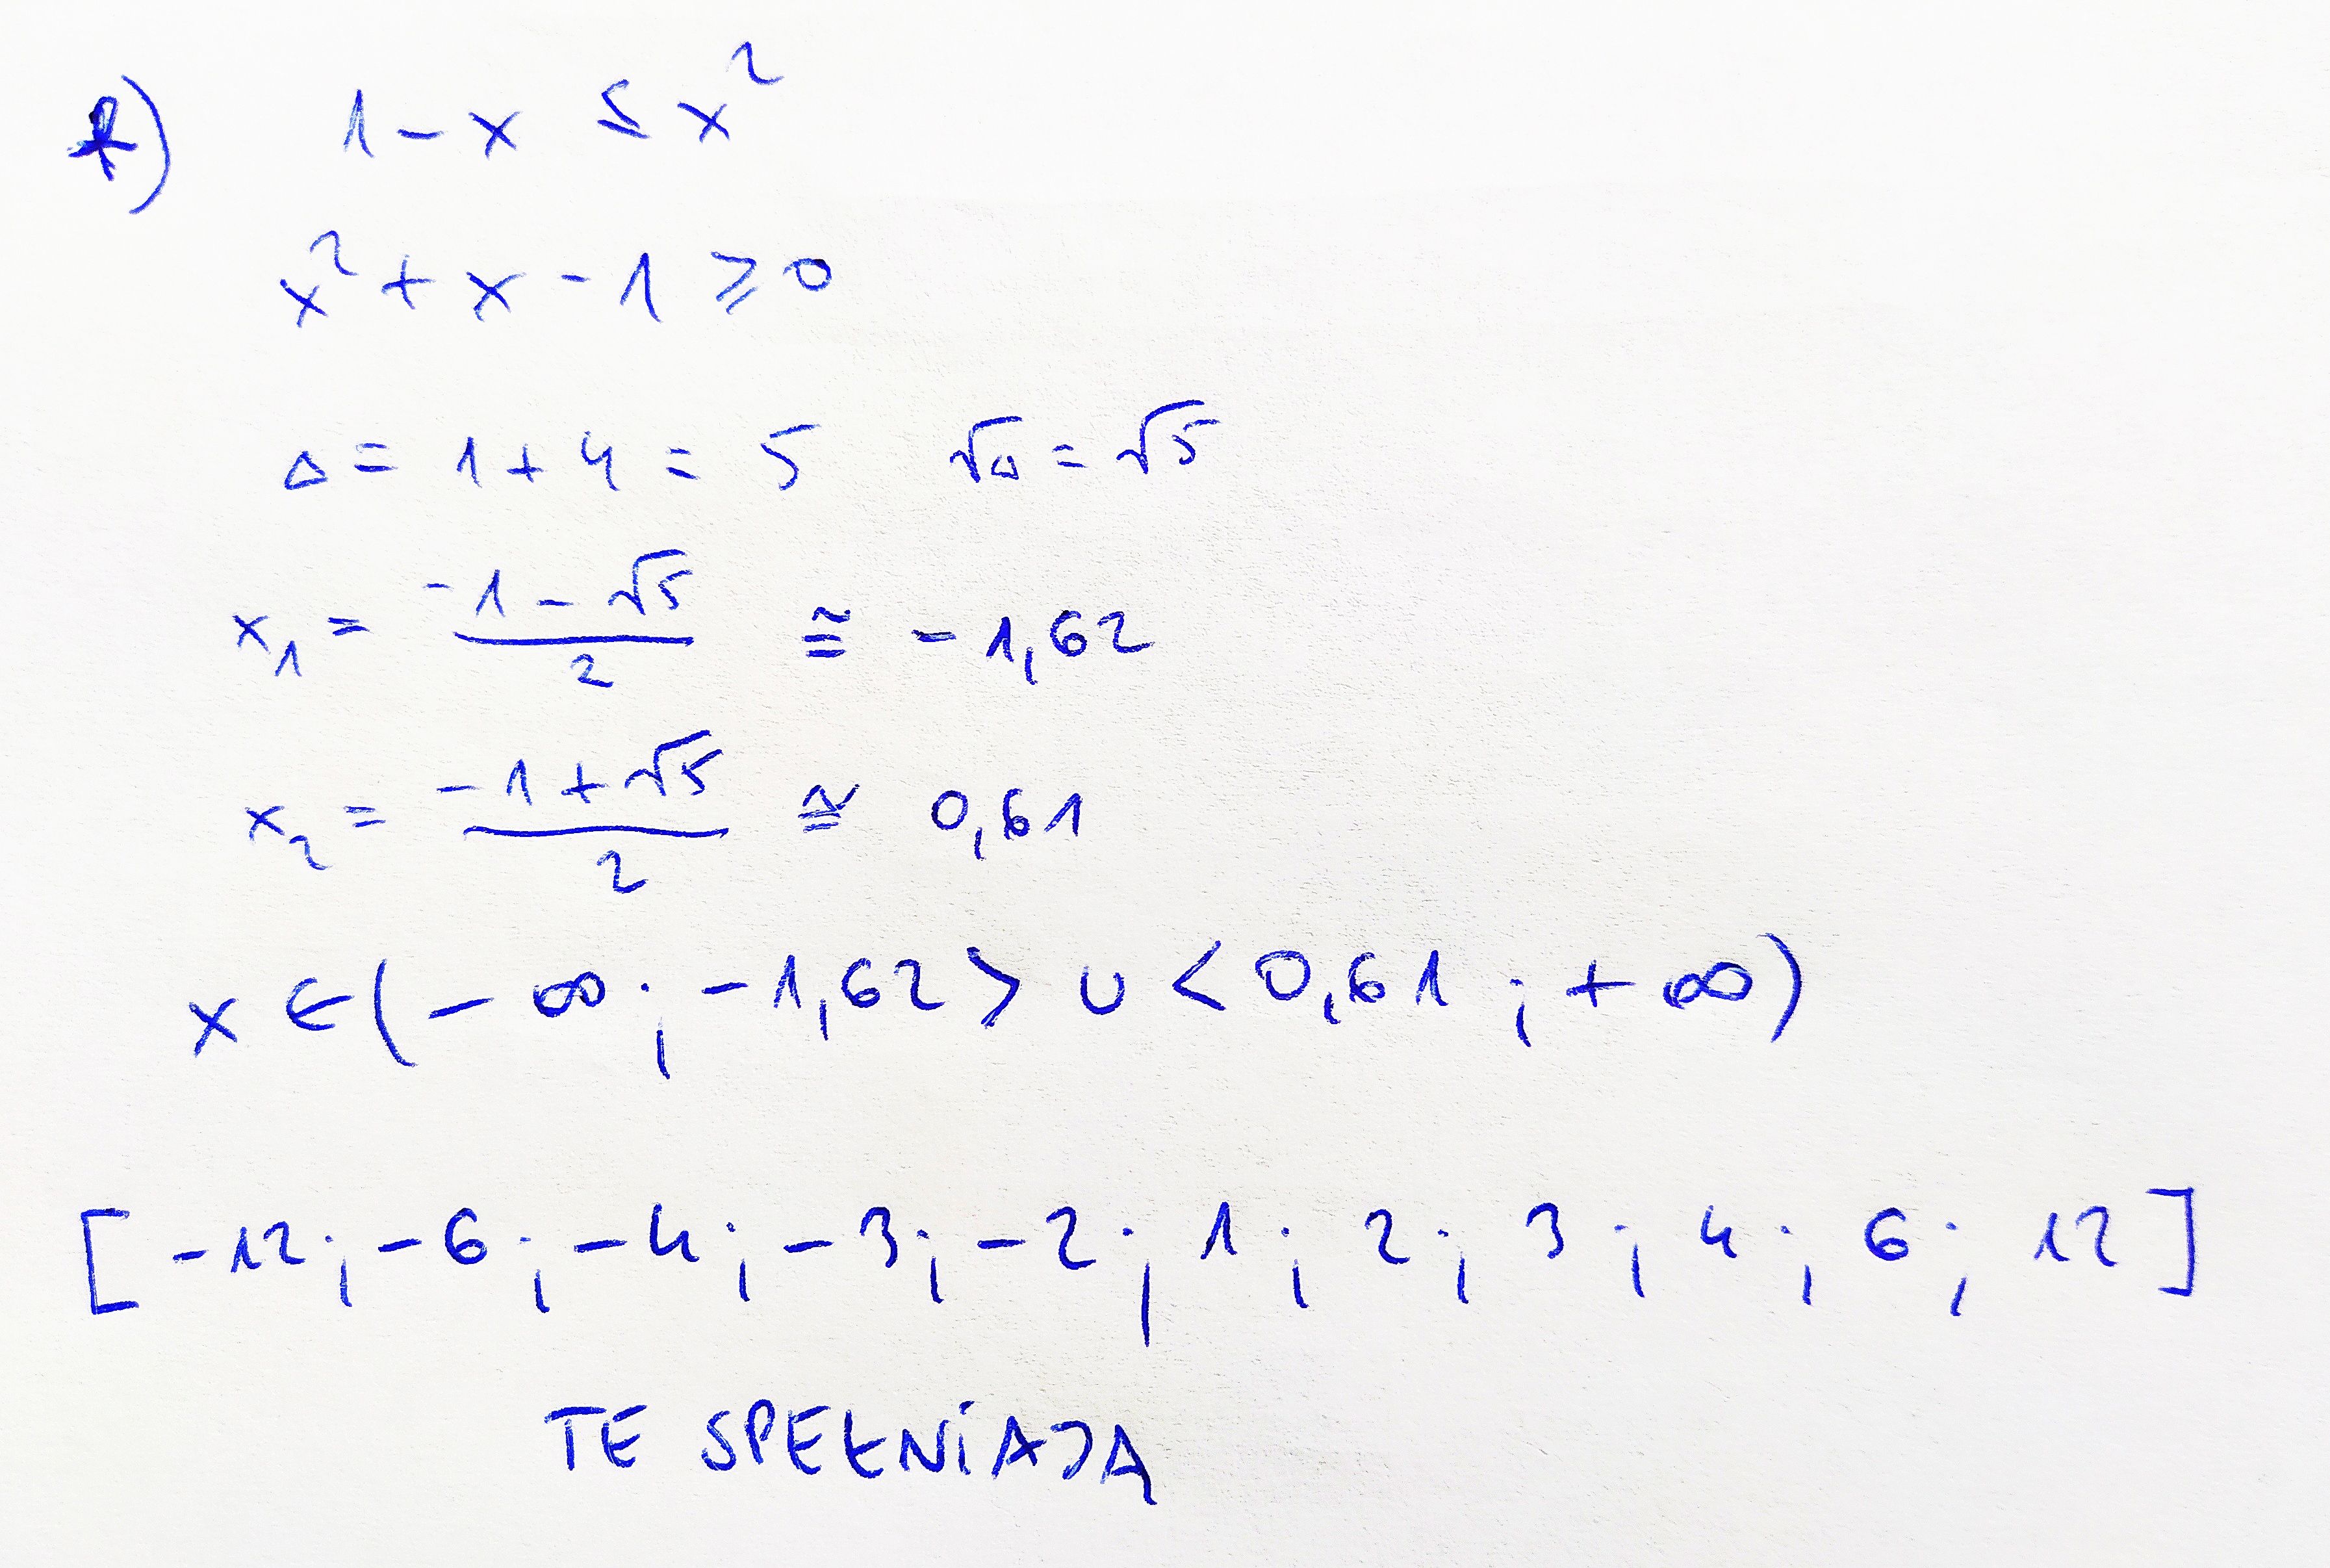 f) 1 - x ≤ x²
x² + x - 1 ≥ 0
Δ = 1 + 4 = 5 √Δ = √5
x₁ = (-1 - √5)/2 ≅ -1,62
x₂ = (-1 + √5)/2 ≅ 0,61
x ∈ (-∞ ; -1,62 > ∪ < 0,61 ; +∞)
[-12 ; -6 ; -4 ; -3 ; -2 ; 1 ; 2 ; 3 ; 4 ; 6 ; 12]
TE SPEŁNIAJĄ